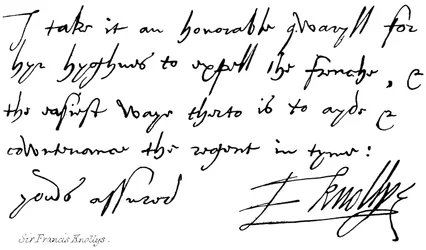 I take it an honorable qwaryll for
hyr hyghnes to expell the frenche, &
the easiest waye therto is to ayde &
cowntenance the regent in tyme:
yowrs assured
F knollys
Sir Francis Knollys.